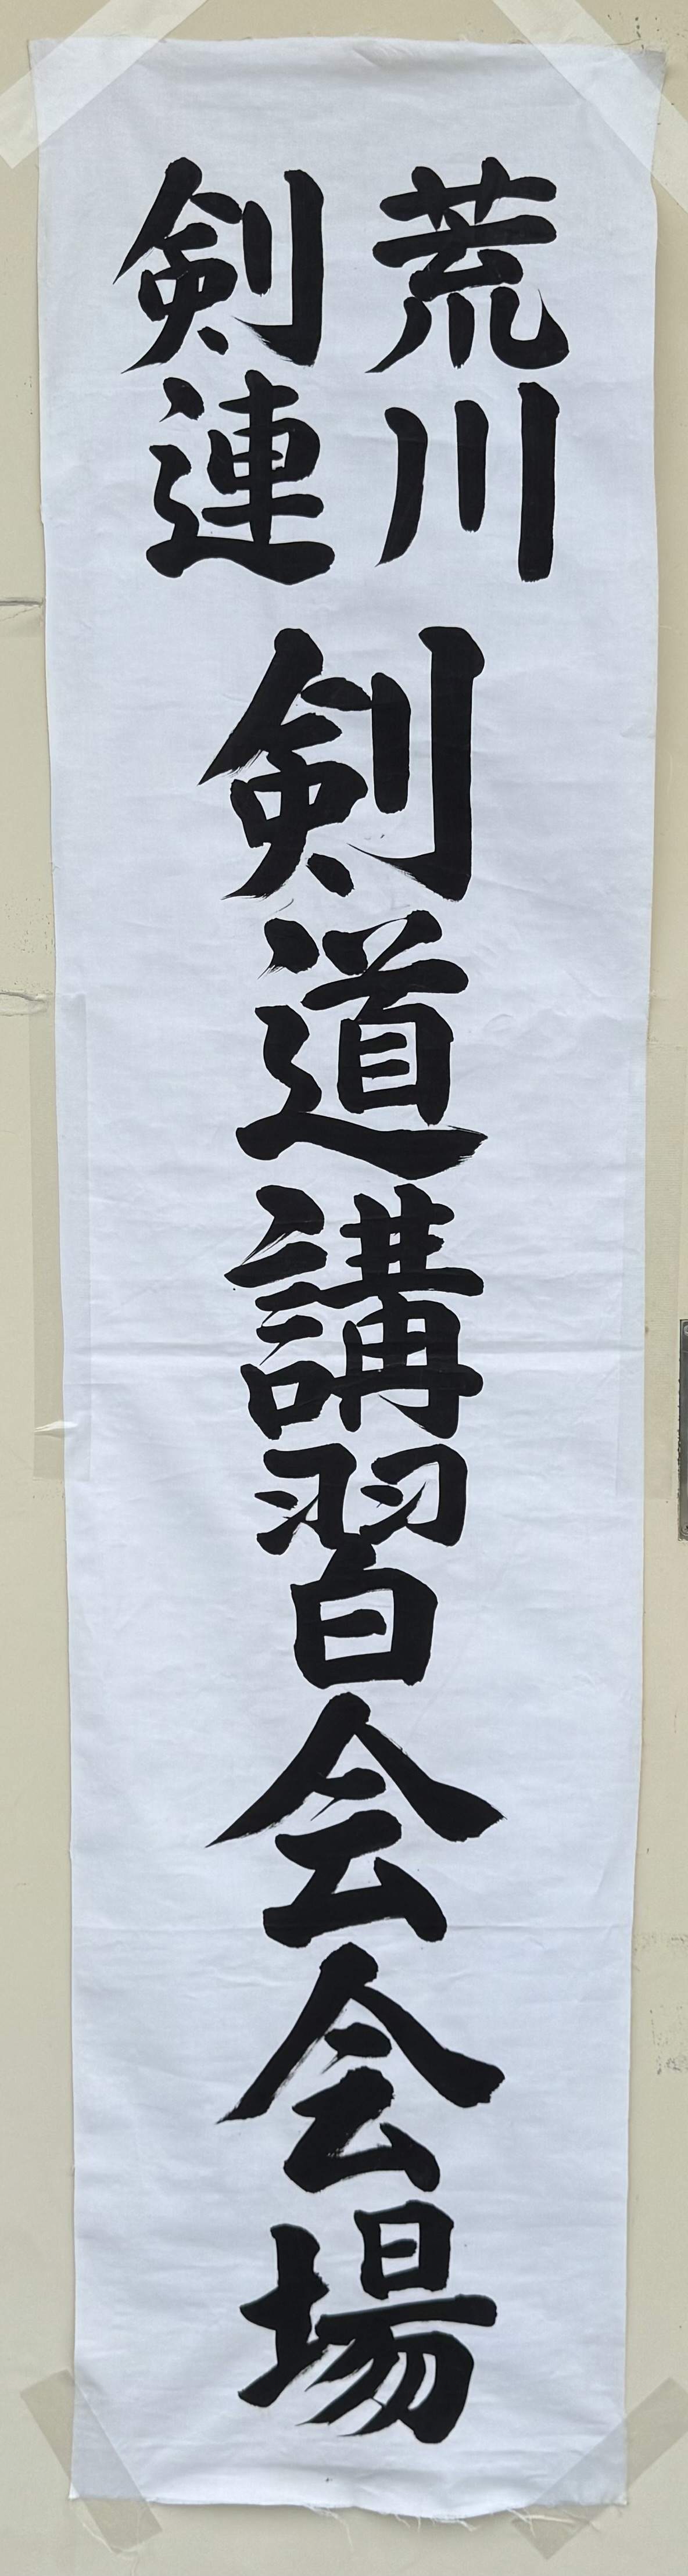 荒川
剣連
剣道講習会会場